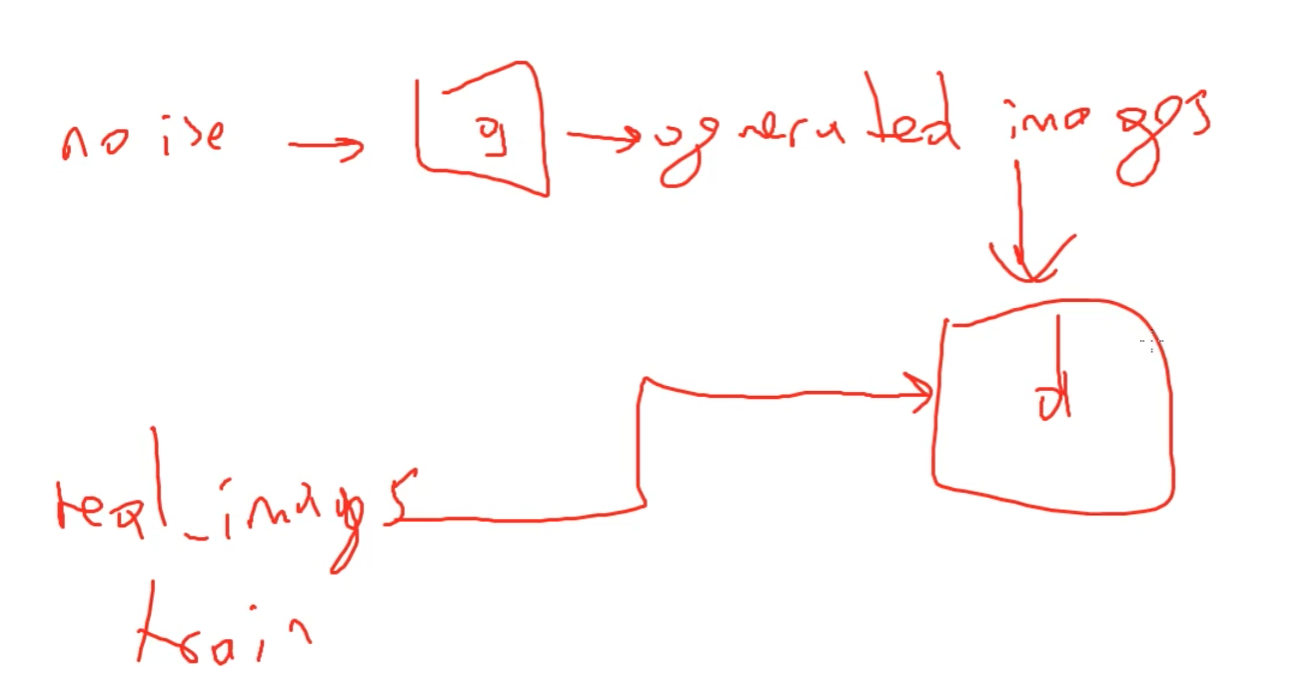 noise → g → generated images
d
real_images
train